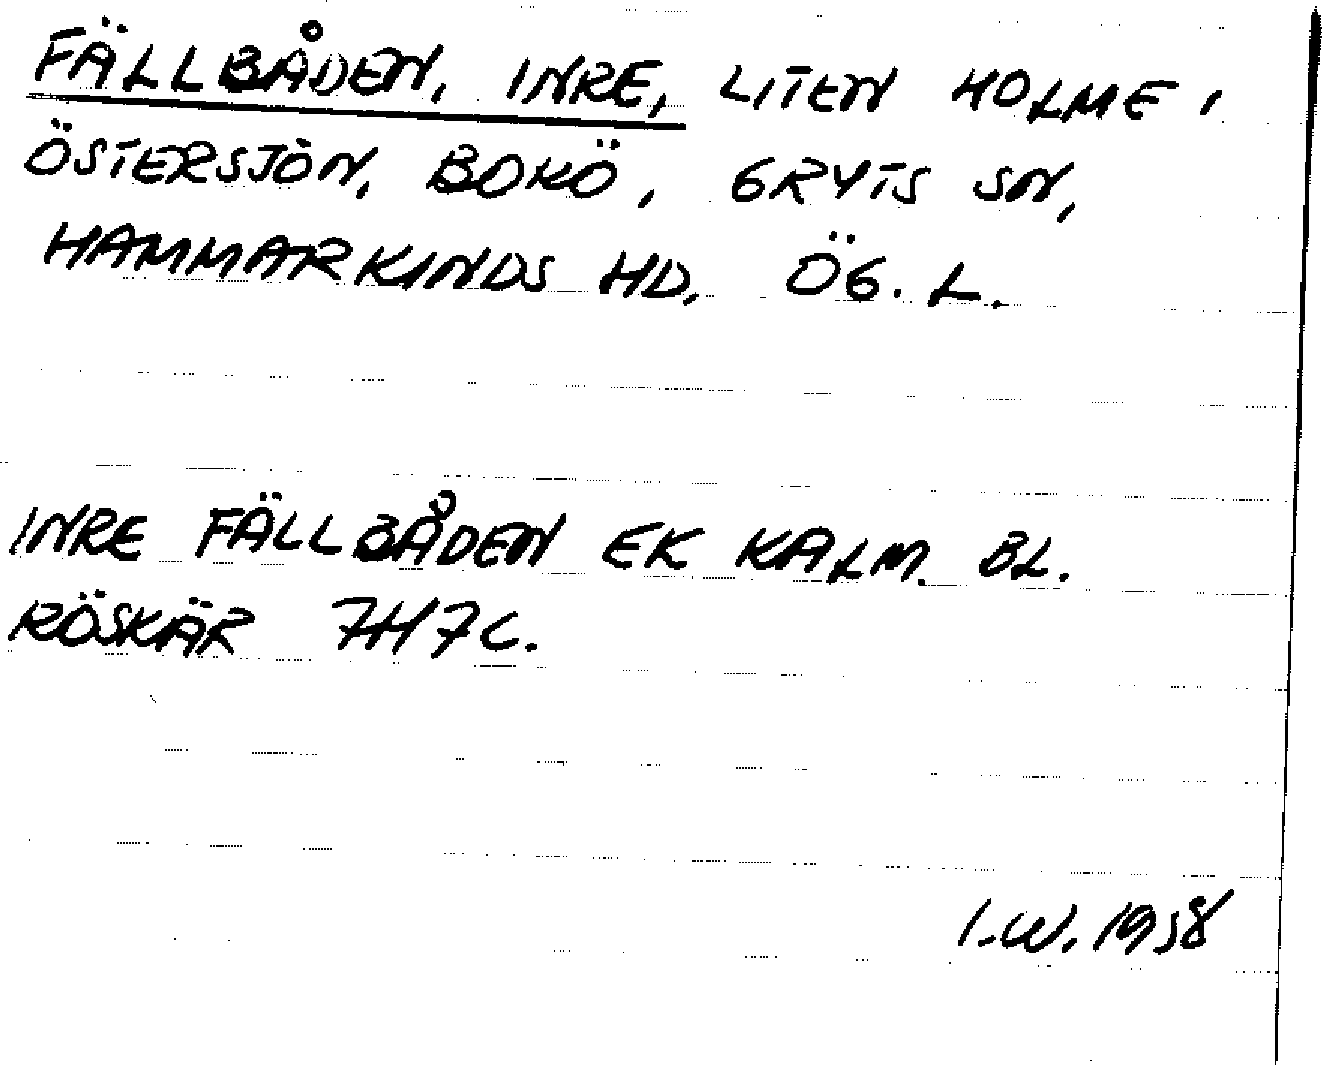 FÄLLBÅDEN, INRE, LITEN HOLME I
ÖSTERSJÖN, BOKÖ, GRYTS SN,
HAMMARKINDS HD, ÖG. L.
INRE FÄLLBÅDEN EK KALM. BL.
RÖSKÄR 7H7C.
I.W. 1958